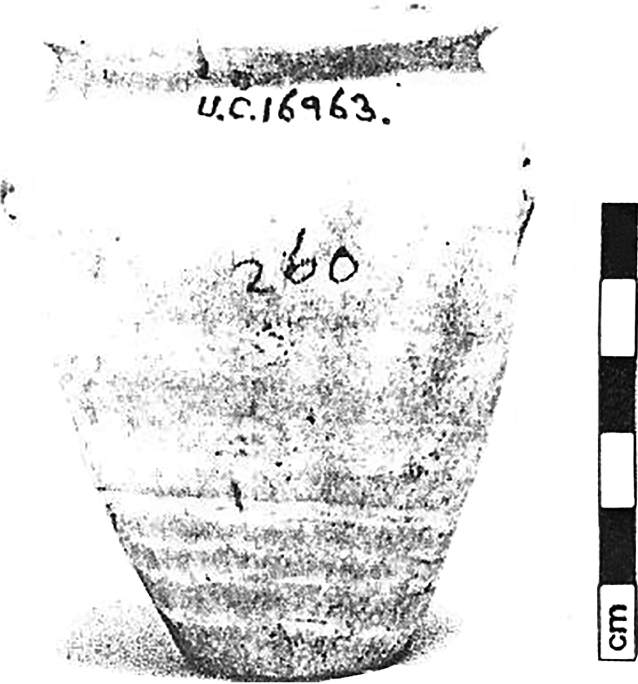 U.C.16963.
260
cm